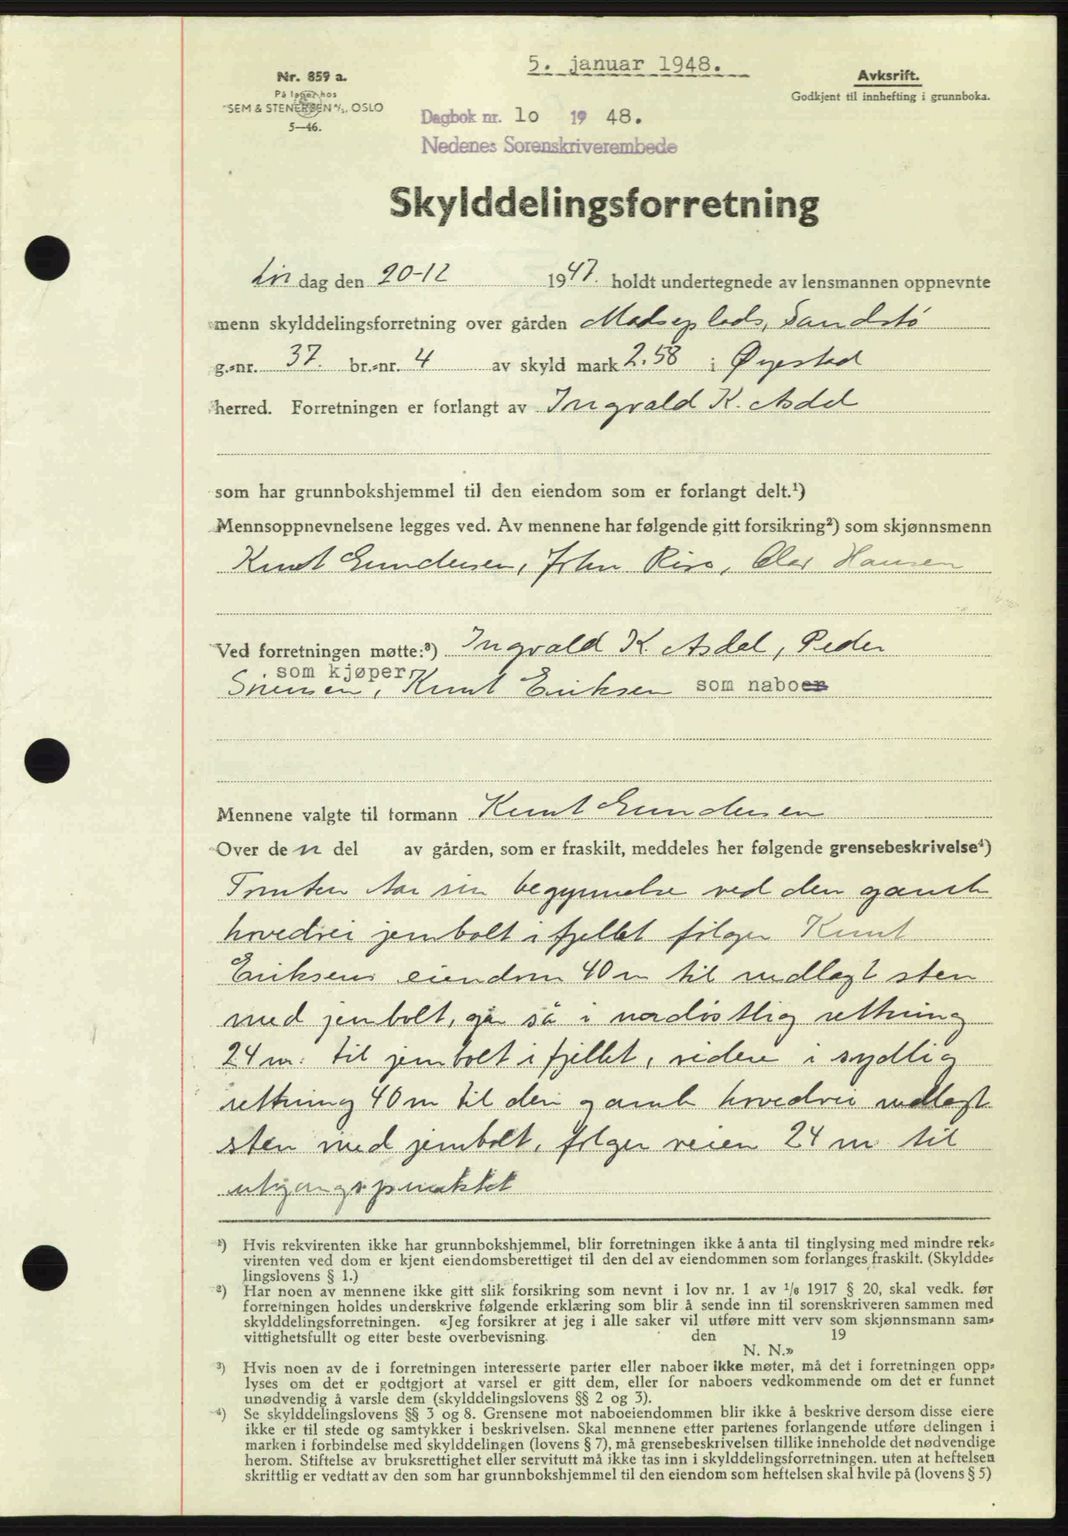 5. januar 1948.
Nr. 859 a.
På lager hos
SEM & STENERSEN A/S, OSLO
5—46.
Avskrift.
Godkjent til innhefting i grunnboka.
Dagbok nr. 1o 19 48.
Nedenes Sorenskriverembede
Skylddelingsforretning
Lør dag den 20-12 1947. holdt undertegnede av lensmannen oppnevnte
menn skylddelingsforretning over gården Madseplads, Sandstø
g.-nr. 37. br.-nr. 4 av skyld mark 2.58 i Øyestad
herred. Forretningen er forlangt av Ingvald K. Asdal
som har grunnbokshjemmel til den eiendom som er forlangt delt.¹)
Mennsoppnevnelsene legges ved. Av mennene har følgende gitt forsikring²) som skjønnsmenn
Knut Gundersen, John Rise, Olav Hansen
Ved forretningen møtte:³) Ingvald K. Asdal, Peder
som kjøper
Sørensen, Knut Eriksen som naboer
Mennene valgte til formann Knut Gundersen
Over de n del av gården, som er fraskilt, meddeles her følgende grensebeskrivelse⁴)
Tomten tar sin begynnelse ved den gamle
hovedvei jernbolt i fjellet følger Knut
Eriksens eiendom 40 m til nedlagt sten
med jernbolt, går så i nordøstlig rettning
24 m. til jernbolt i fjellet, videre i sydlig
rettning 40 m til den gamle hovedvei nedlagt
sten med jernbolt, følger veien 24 m til
utgangspunktet
¹) Hvis rekvirenten ikke har grunnbokshjemmel, blir forretningen ikke å anta til tinglysing med mindre rek-
virenten ved dom er kjent eiendomsberettiget til den del av eiendommen som forlanges fraskilt. (Skyldde-
lingslovens § 1.)
²) Har noen av mennene ikke gitt slik forsikring som nevnt i lov nr. 1 av 1/6 1917 § 20, skal vedk. før
forretningen holdes underskrive følgende erklæring som blir å sende inn til sorenskriveren sammen med
skylddelingsforretningen. «Jeg forsikrer at jeg i alle saker vil utføre mitt verv som skjønnsmann sam-
vittighetsfullt og etter beste overbevisning. den 19
N. N.»
³) Hvis noen av de i forretningen interesserte parter eller naboer ikke møter, må det i forretningen opp-
lyses om det er godtgjort at varsel er gitt dem, eller for naboers vedkommende om det er funnet
unødvendig å varsle dem (skylddelingslovens §§ 2 og 3).
⁴) Se skylddelingslovens §§ 3 og 8. Grensene mot naboeiendommen blir ikke å beskrive dersom disse eiere
ikke er til stede og samtykker i beskrivelsen. Skal mennene etter partenes forlangende utføre delingen i
marken i forbindelse med skylddelingen (lovens § 7), må grensebeskrivelsen tillike inneholde det nødvendige
herom. Stiftelse av bruksrettighet eller servitutt må ikke tas inn i skylddelingsforretningen, uten at heftelsen
skriftlig er vedtatt av den som har grunnbokshjemmel til den eiendom som heftelsen skal hvile på (lovens § 5)